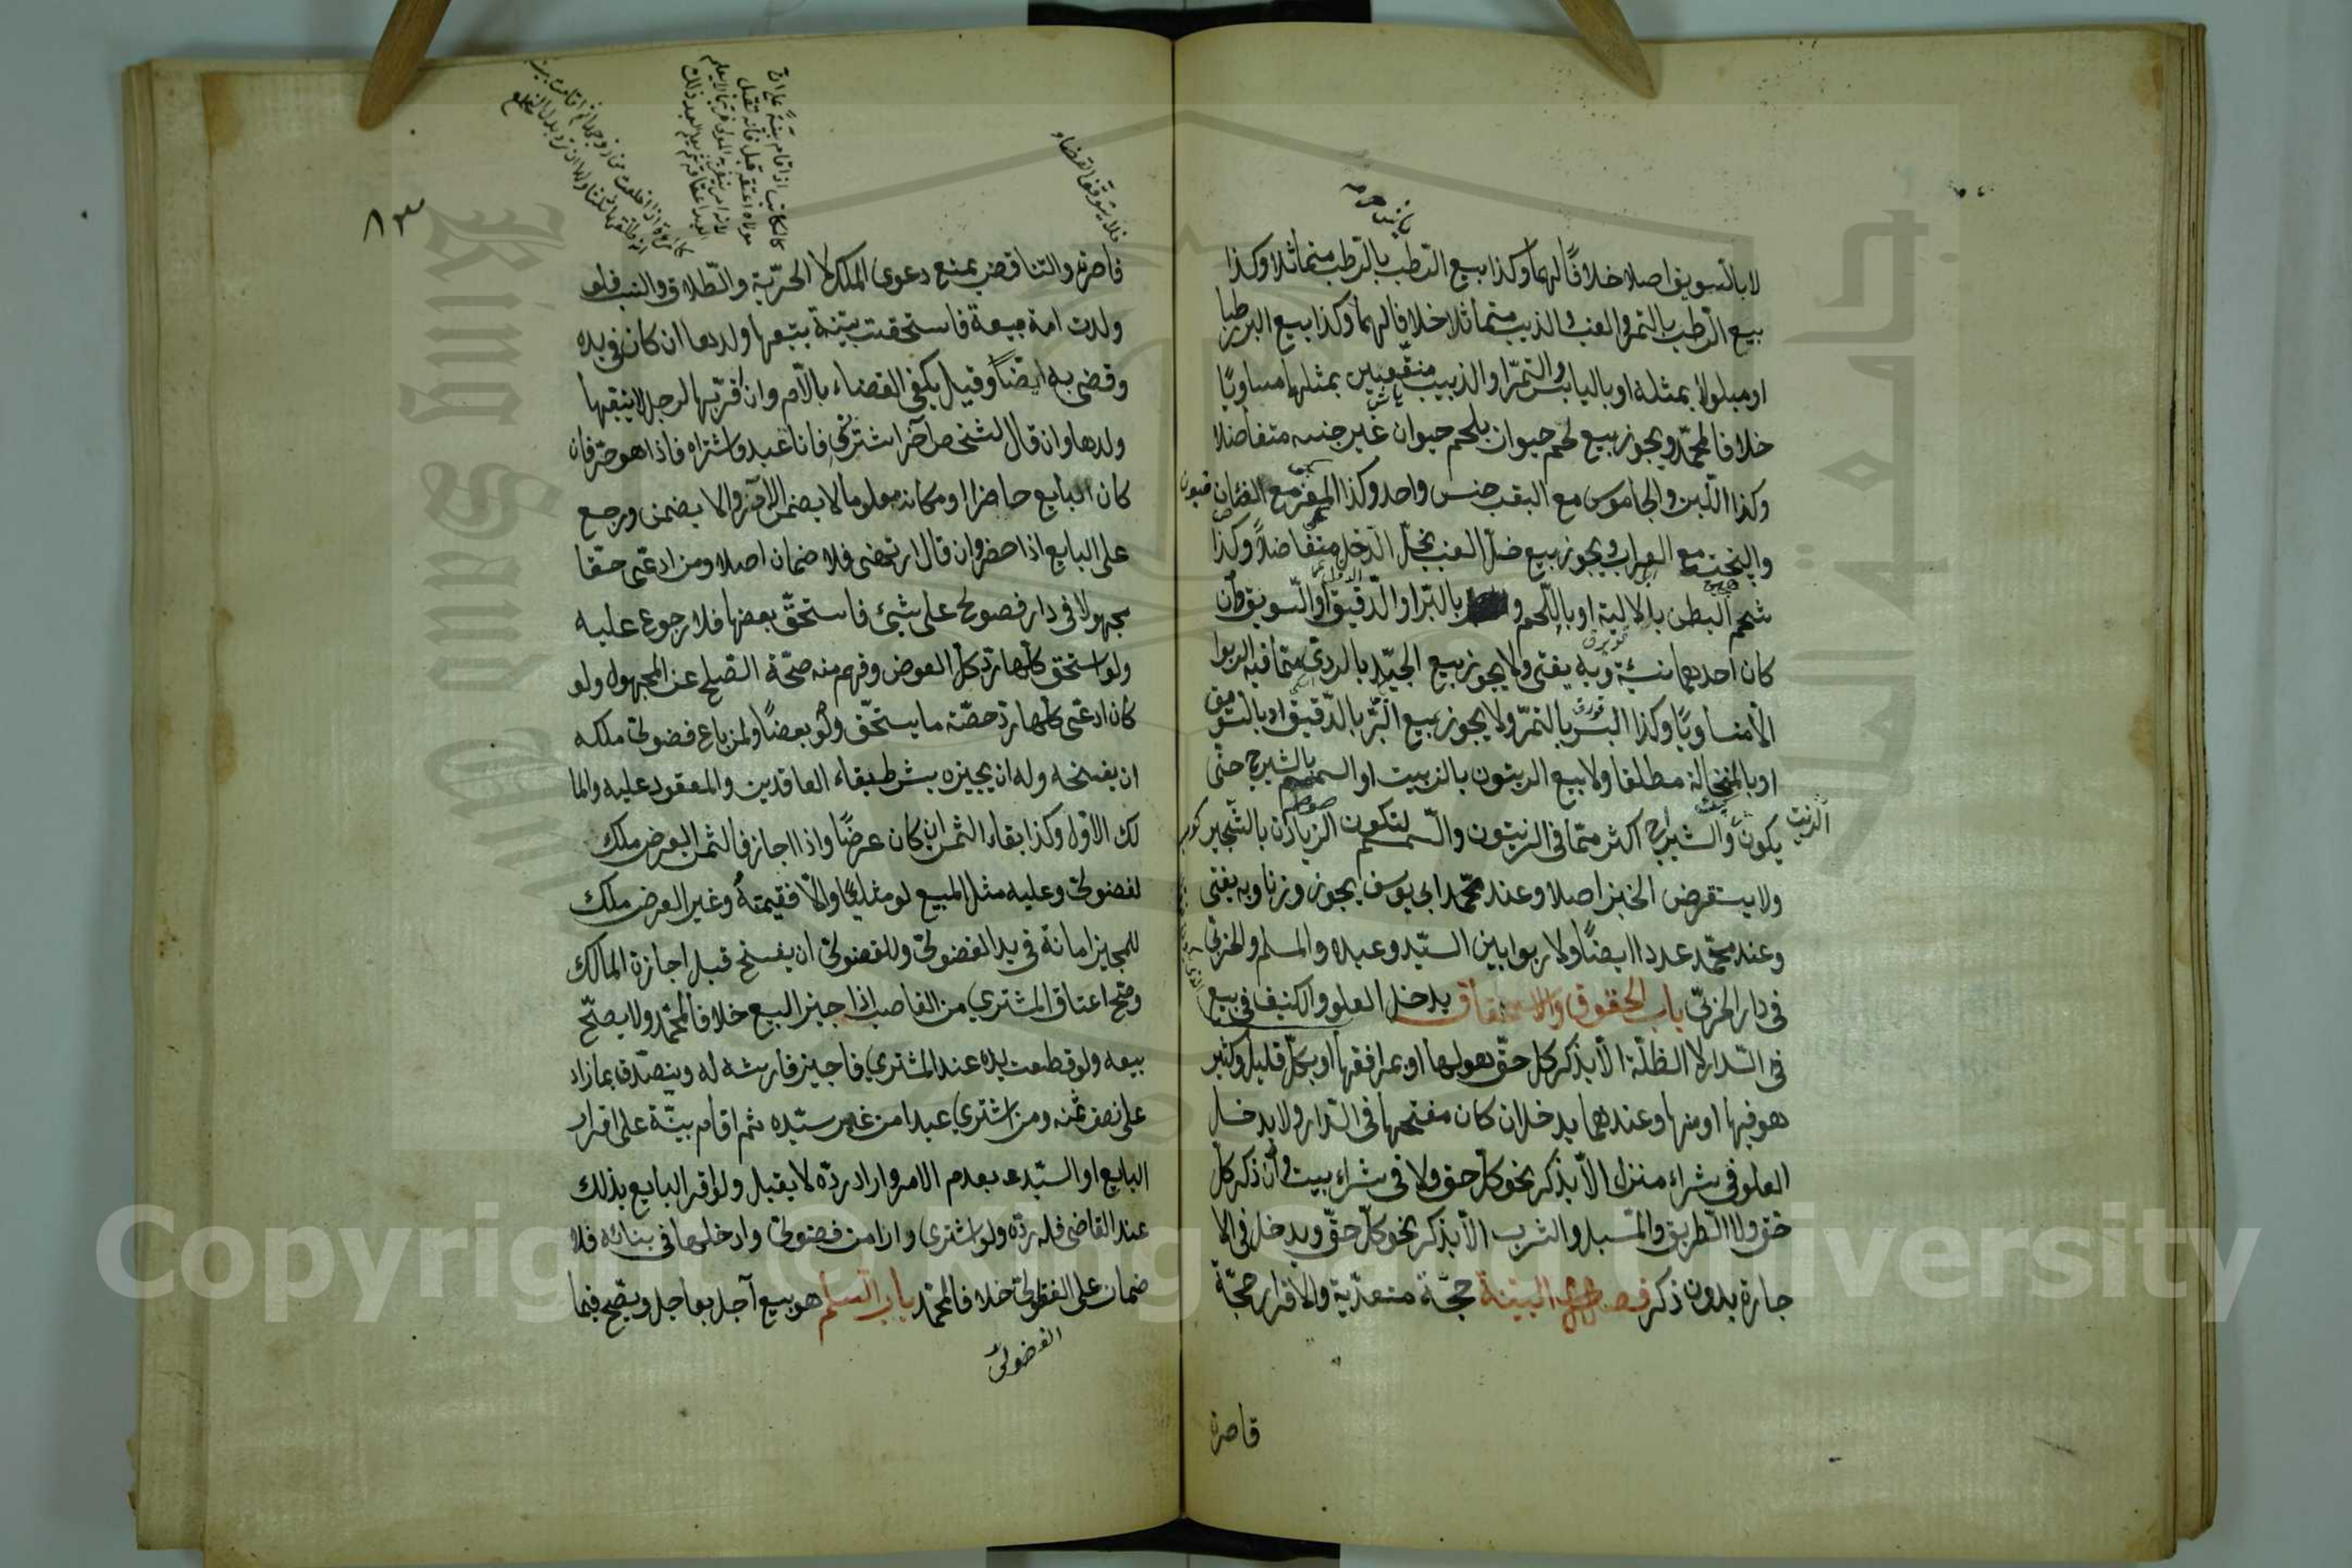 لا بالسويق اصلا خلافا لهما وكذا بيع الرطب بالرطب متماثلا وكذا
بيع الرطب بالتمر والعنب والزبيب متماثلا خلافا لهما وكذا بيع البر رطبا
او مبلولا بمثله او باليابس والتمر او الزبيب منقعين بمثلهما مساويا
خلافا لمحمد ويجوز بيع لحم حيوان بلحم حيوان غير جنسه متفاضلا
وكذا اللبن والجاموس مع البقر جنس واحد وكذا المعز مع الضان
والبخت مع العراب ويجوز بيع خل العنب بخل الدخل متفاضلا وكذا
شحم البطن بالالية او باللحم و بالبر او الدقيق او السويق وان
كان احدهما نسيئة وبه يفتى ولا يجوز بيع الجيد بالردي مما فيه الربوا
الا متساويا وكذا البسر بالتمر ولا يجوز بيع البر بالدقيق او بالسويق
او بالنخالة مطلقا ولا بيع الزيتون بالزيت او السمسم بالشيرج حتى
يكون الزيت والشيرج اكثر مما في الزيتون والسمسم لتكون الزيادة بالثجير
ولا يستقرض الخبز اصلا وعند محمد ابي يوسف يجوز وزنا وبه يفتى
وعند محمد عددا ايضا ولا ربوا بين السيد وعبده والمسلم والحربي
في دار الحربي باب الحقوق والاستحقاق يدخل العلو والكنيف في بيع
في الدار لا الظلة الا بذكر كل حق هو لها او بمرافقها او بكل قليل وكثير
هو فيها او منها وعندهما يدخل ان كان مفتحها في الدار ولا يدخل
العلو في شراء منزل الا بذكر نحو كل حق ولا في شراء بيت وان ذكر كل
حق ولا الطريق والمسيل والشرب الا بذكر نحو كل حق ويدخل في الا
جارة بدون ذكر فصل البينة حجة متعدية والاقرار حجة
قاصرة
٨٣
فلا يتوقف القضاء
قاصرة والتناقض يمنع دعوى الملك لا الحرية والطلاق والنسب فلو
ولدت امة مبيعة فاستحقت ببينة يتبعها ولدها ان كان في يده
وقضى به ايضا وقيل يكفي القضاء بالام وان اقر بها لرجل لا يتبعها
ولدها وان قال لشخص آخر اشترني فانا عبد فاشتراه فاذا هو حر فان
كان البايع حاضرا او مكانه معلوما لا يضمن الآمر والا يضمن ورجع
على البايع اذا حضر وان قال ارتهنى فلا ضمان اصلا ومن ادعى حقا
مجهولا في دار فصولح على شيئ فاستحق بعضها فلا رجوع عليه
ولو استحق كلها رد كل العوض وفهم منه صحة الصلح عن المجهول ولو
كان ادعى كلها رد حصة ما يستحق ولو بعضا ولمن باع فضولى ملكه
ان يفسخه وله ان يجيزه بشرط بقاء العاقدين والمعقود عليه والما
لك الاول وكذا بقاء الثمن ان كان عرضا واذا اجاز فالثمن العرض ملك
لفضولى وعليه مثل المبيع لو مثليا والا فقيمته وغير العرض ملك
للمجيز امانة في يد الفضولى وللفضولى ان يفسخ قبل اجازة المالك
وصح اعتاق المشتري من الغاصب اذا جيز البيع خلافا لمحمد ولا يصح
بيعه ولو قطعت يده عند المشتري فاجيز فارشه له ويتصدق بما زاد
على نصف ثمنه ومن اشترى عبدا من غير سيده ثم اقام بينة على اقرار
البايع او السيد بعدم الامر واراد رده لا يقبل ولو اقر البايع بذلك
عند القاضي فله رده ولو اشترى دارا من فضولى وادخلها في بنائه فلا
ضمان على الفضولى خلافا لمحمد باب السلم هو بيع آجل بعاجل ويصح فيما
الفضولى
Copyright © King Saud University